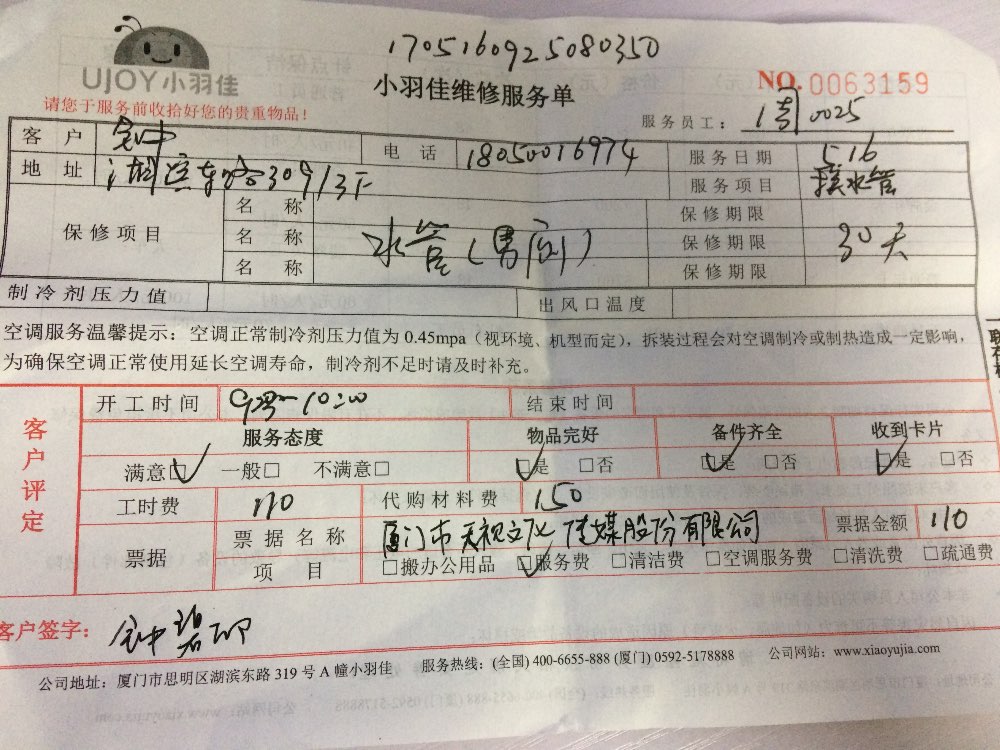 1705160925080350
UJOY小羽佳
小羽佳维修服务单
NO.0063159
请您于服务前收拾好您的贵重物品！
服务员工： 1周 0025
客户 钟 电话 18050016974 服务日期 5 16
地址 湖滨东路309 13F 服务项目 接水管
保修项目 名称 保修期限
名称 水管(男厕) 保修期限 30天
名称 保修期限
制冷剂压力值 出风口温度
空调服务温馨提示：空调正常制冷剂压力值为 0.45mpa（视环境、机型而定），拆装过程会对空调制冷或制热造成一定影响，
为确保空调正常使用延长空调寿命，制冷剂不足时请及时补充。
客户评定
开工时间 结束时间
服务态度 物品完好 备件齐全 收到卡片
满意□ 一般□ 不满意□ □是 □否 □是 □否 □是 □否
工时费 110 代购材料费 150
票据 票据名称 厦门市天视文化传媒股份有限公司 票据金额 110
项目 □搬办公用品 □服务费 □清洁费 □空调服务费 □清洗费 □疏通费
客户签字： 钟碧
公司地址：厦门市思明区湖滨东路 319 号 A 幢小羽佳 服务热线：(全国) 400-6655-888 (厦门) 0592-5178888 公司网站：www.xiaoyujia.com